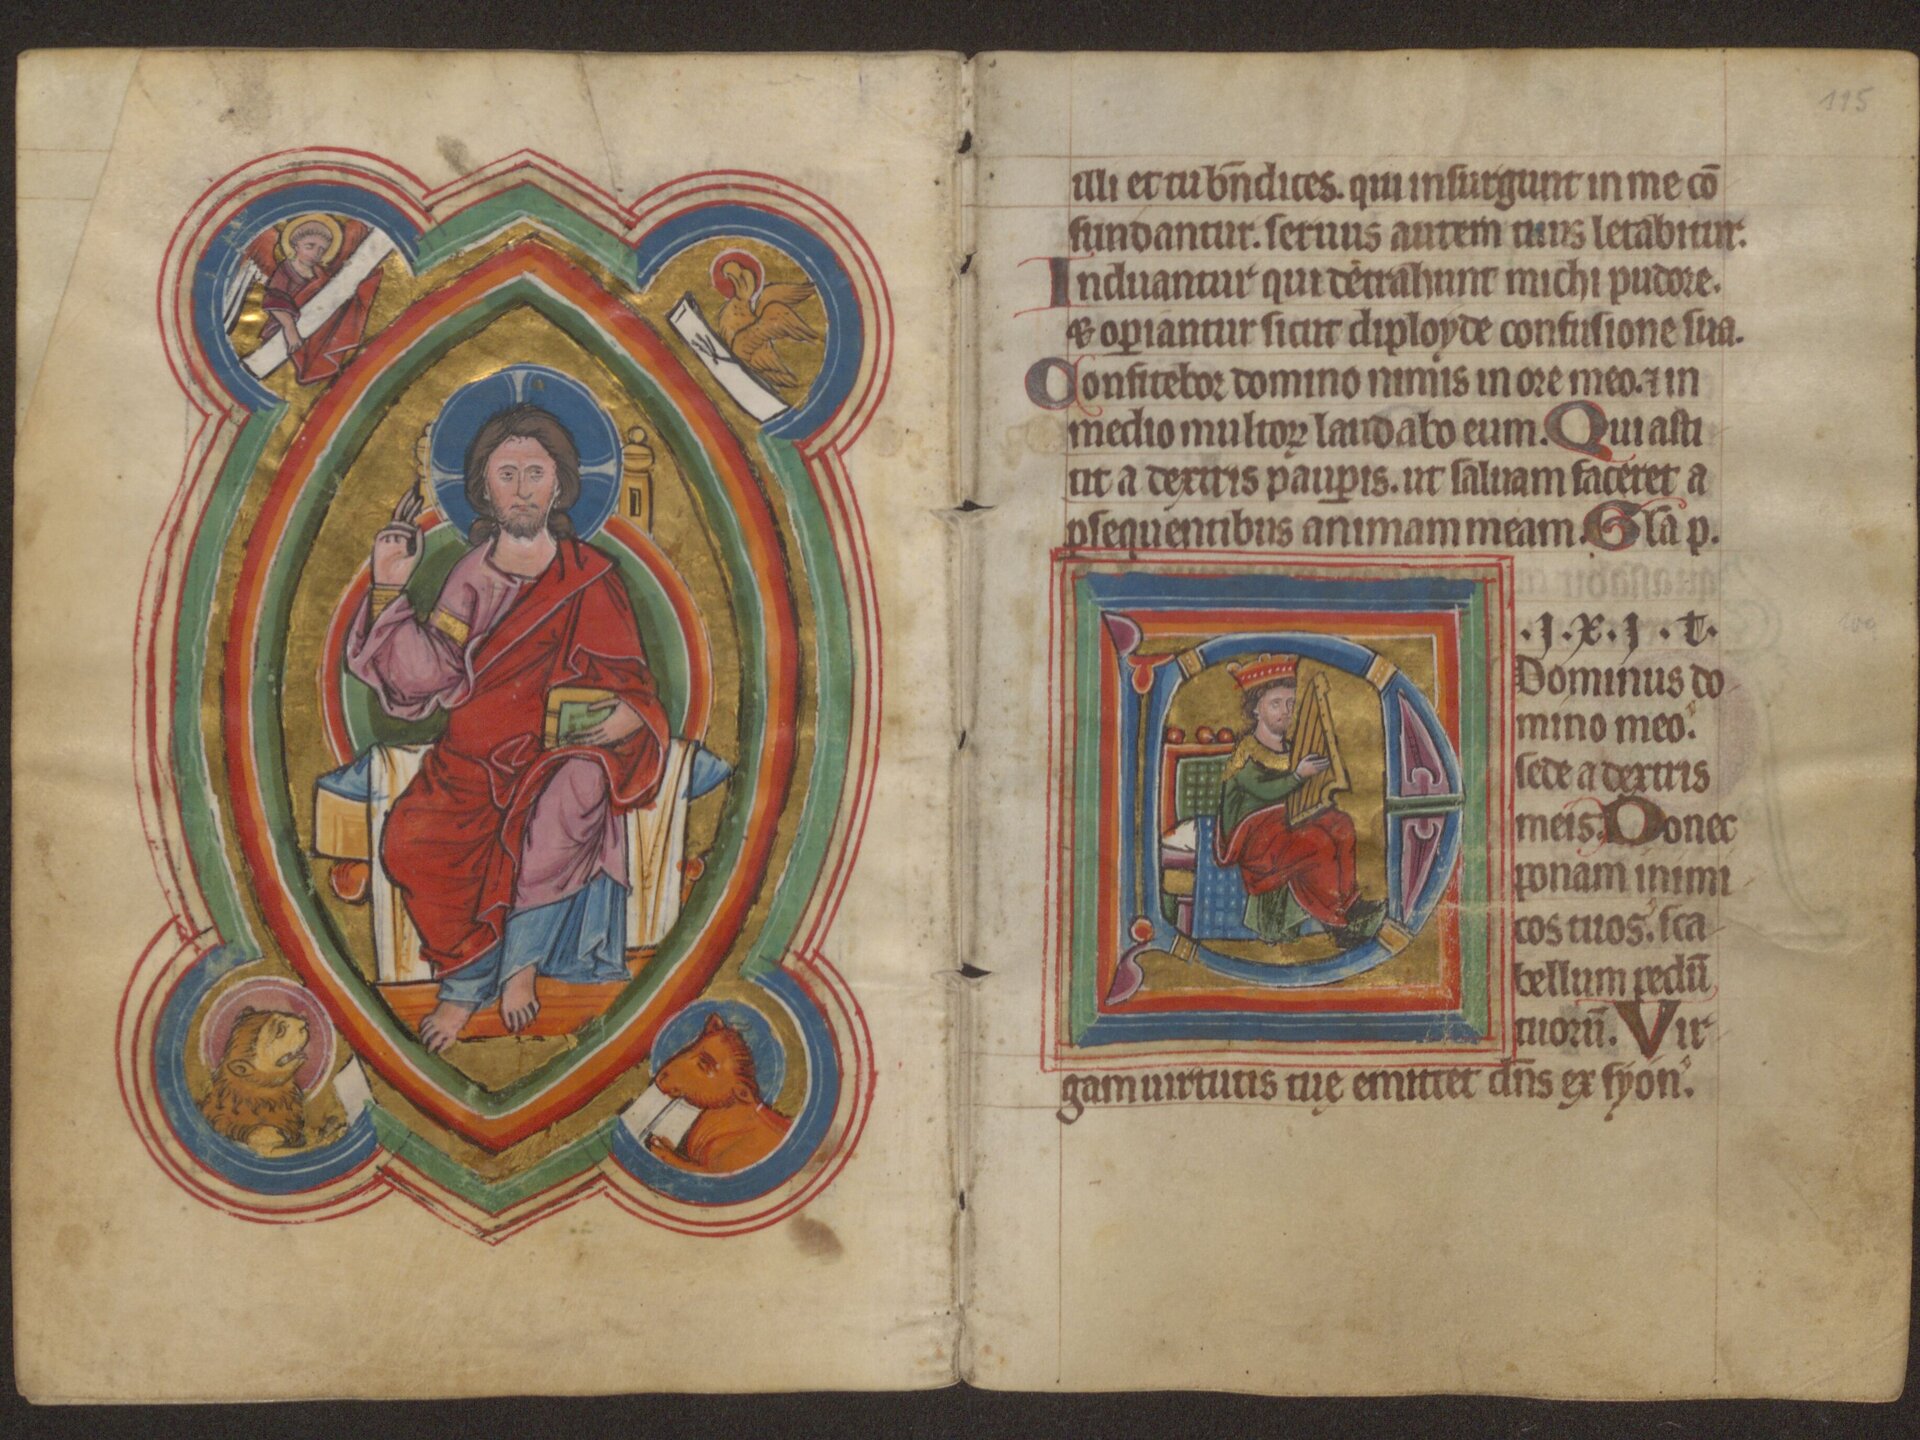 115
illi et tu bn̄dices. qui insurgunt in me cō
fundantur. seruus autem tuus letabitur.
Induantur qui detrahunt michi pudore.
& opiantur sicut diployde confusione sua.
Confitebor domino nimis in ore meo. ⁊ in
medio multoꝝ laudabo eum. Qui asti
tit a dextris pauꝑis. ut saluam faceret a
ꝑsequentibus animam meam. Glā p.
D
.I.X.I.T.
Dominus do
mino meo.
sede a dextris
meis. Donec
ponam inimi
cos tuos. sca
bellum pedū
tuorū. Vir
gam uirtutis tuę emittet dn̄s ex syon.